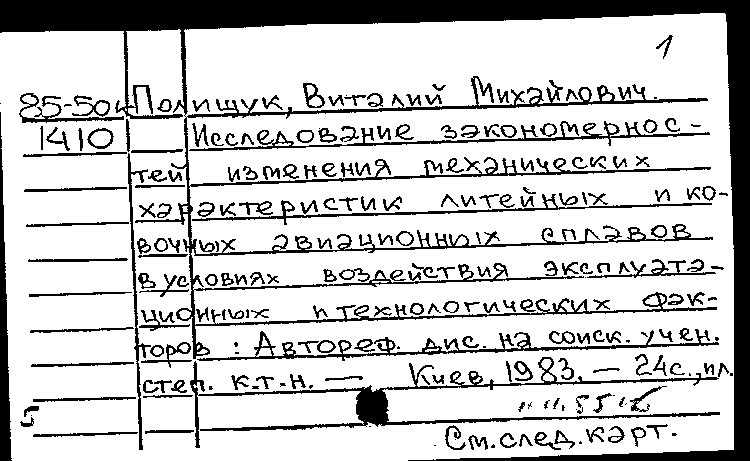 1
85-50к Полищук, Виталий Михайлович.
1410 Исследование закономернос-
тей изменения механических
характеристик литейных и ко-
вочных авиационных сплавов
в условиях воздействия эксплуата-
ционных и технологических фак-
торов : Автореф. дис. на соиск. учен.
степ. к.т.н. — Киев, 1983. — 24с., ил.
См. след. карт.